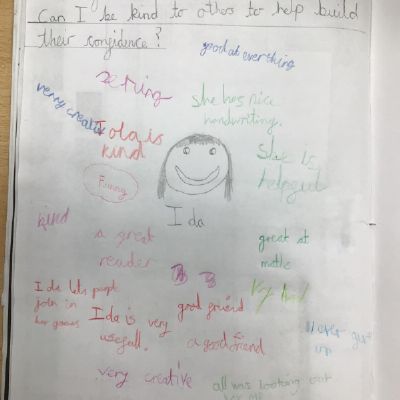 Can I be kind to others to help build
their confidence?
good at everything
verry creativ
she has nice
handwriting.
Iola is
kind
She is
helpgul
Funny
kind
Ida
a great
reader
great at
math
Ida lets people
join in
her games
good friend
Ida is very
usefull.
a good friend
Never giv
up
very creative
all was looking out